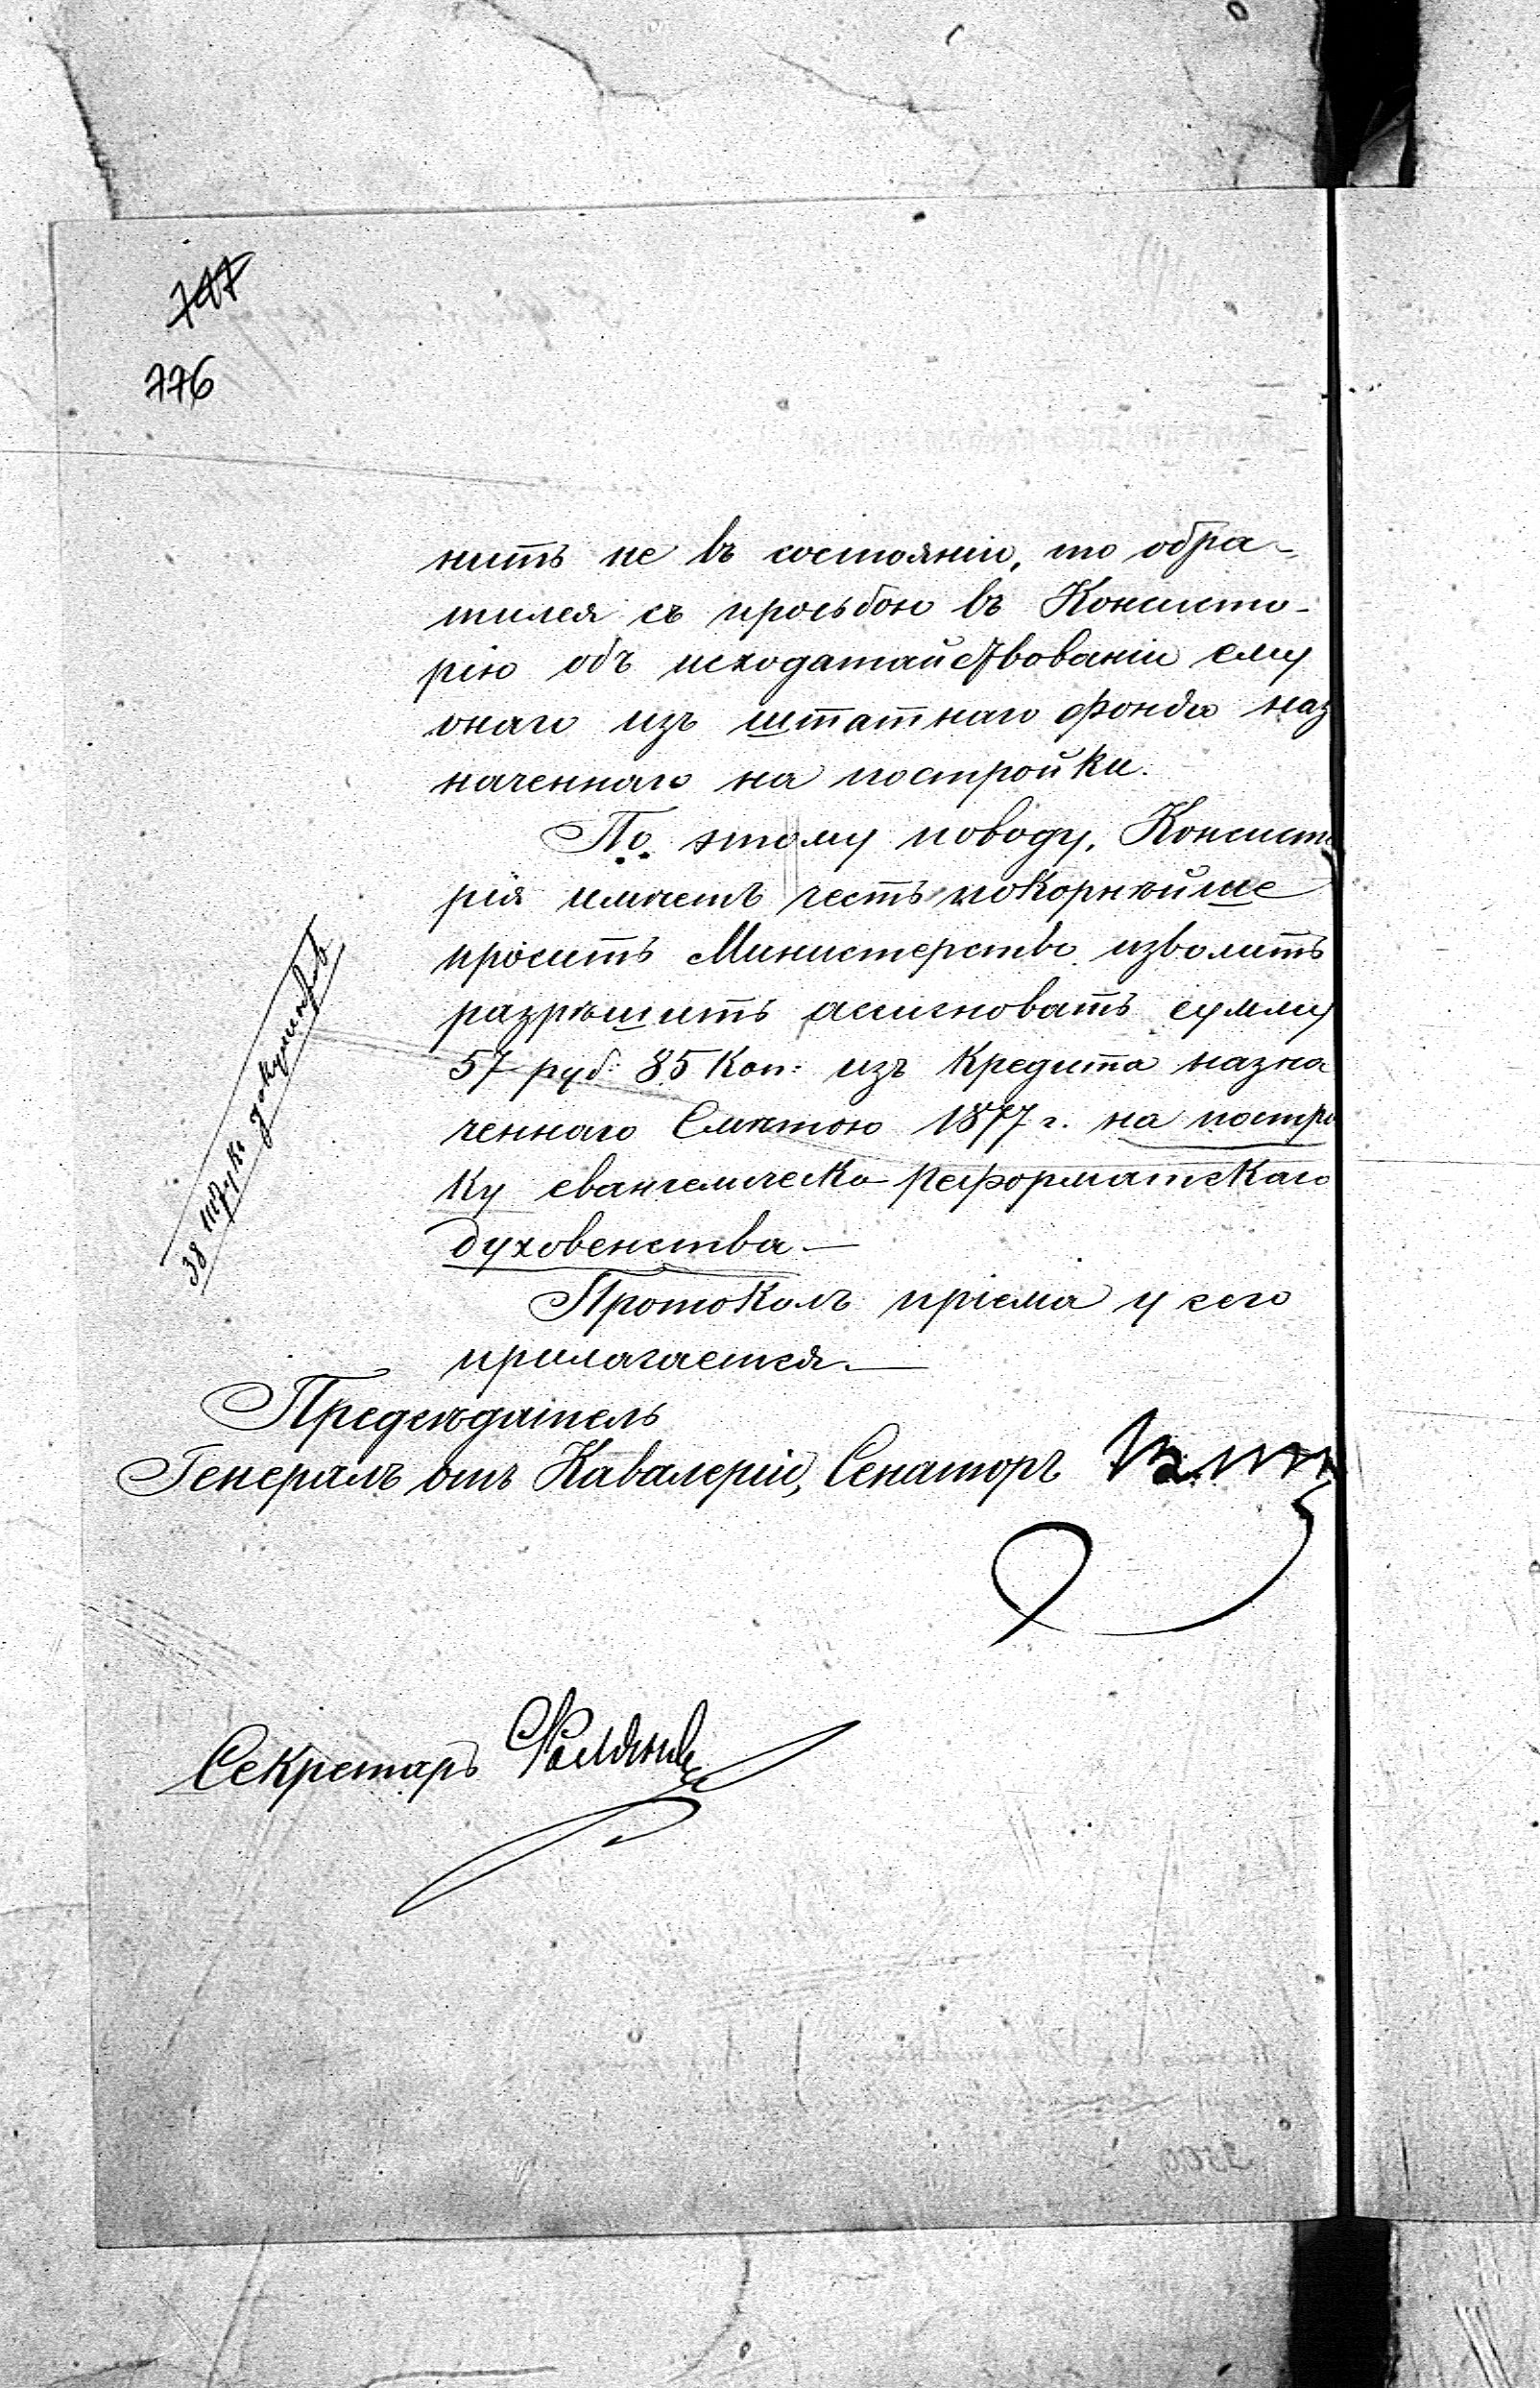 747
776
нить не въ состояніи, то обра-
тился съ просьбою въ Консисто-
рію объ исходатайствованіи ему
онаго изъ штатнаго фонда наз
наченнаго на постройки.
По этому поводу, Консисто
рія имѣетъ честь покорнѣйше
просить Министерство изволить
разрѣшить асигновать сумму
57 руб: 85 Коп: изъ Кредита назна
ченнаго Смѣтою 1877 г. на постро
ку евангелическо-реформатскаго
духовенства.—
Протоколъ пріема у сего
прилагается.—
38 штукъ документовъ
Предсѣдатель
Генералъ отъ Кавалеріи, Сенаторъ
Секретарь